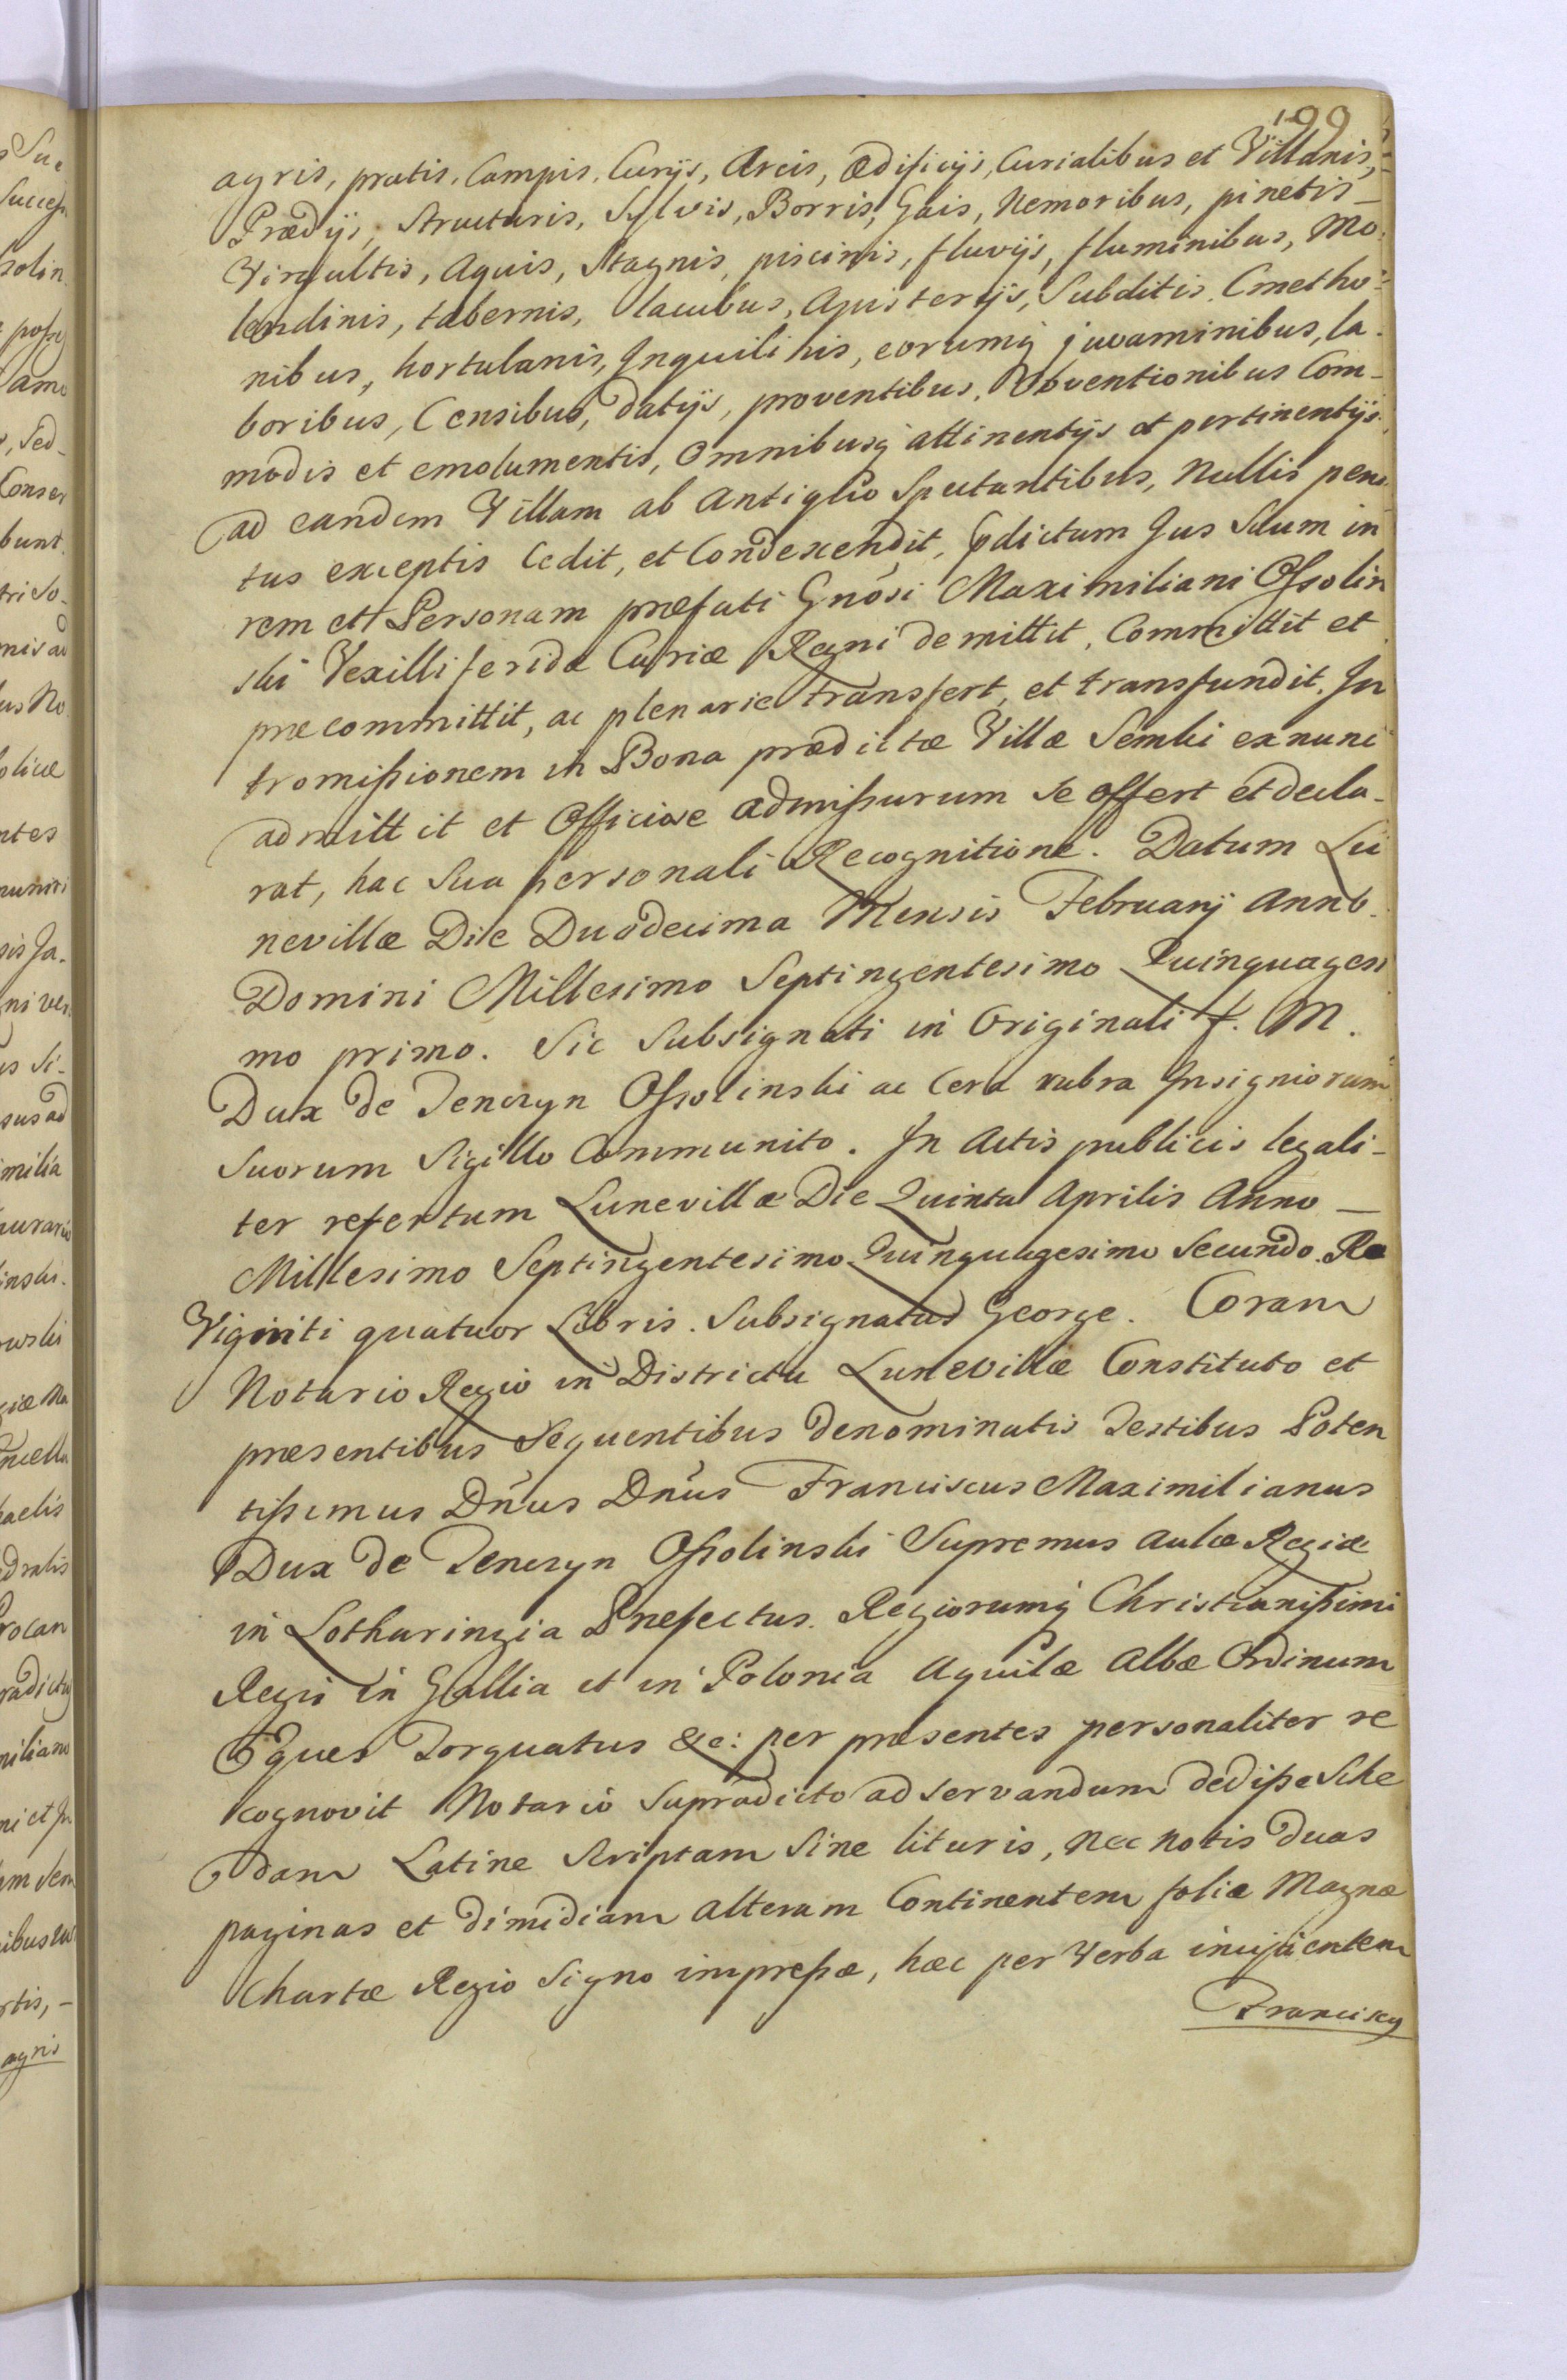 199
agris, pratis, Campis, Curijs, Areis, Ædificijs, Curialibus et Villanis,
Prædijs, structuris, Sylvis, Borris, Gais, Nemoribus, pinetis
Virgultis, Aquis, Stagnis, piscinis, fluvijs, fluminibus, Mo
lendinis, tabernis, lacubus, Apisterijs, Subditis, Cmetho
nibus, hortulanis, Inquilinis, eorumq juvaminibus, la
boribus, Censibus, datijs, proventibus, Obventionibus Com-
modis et emolumentis, Omnibusq attinentijs et pertinentijs
ad eandem Villam ab Antiquo Spectantibus, Nullis peni
tus exceptis Cedit, et Condescendit, Pdictum Jus Suum in
rem et Personam præfati Gnōsi Maximiliani Ossolin
ski Vexilliferidæ Curiæ Regni demittit, Committit et
præcommittit, ac plenarie transfert, et transfundit. In
tromissionem in Bona prædictæ Villæ Semki exnunc
admittit et Officiose admissurum se offert et decla-
rat, hac Sua personali Recognitione. Datum Lu
nevillæ Die Duodecima Mensis Februarij Anno
Domini Millesimo Septingentesimo Quinquagesi
mo primo. Sic Subsignati in Originali F. M.
Dux de Tenczyn Ossolinski ac Cera rubra Insigniorum
Suorum Sigillo Communito. In Actis publicis legali-
ter refertum Lunevillæ Die Quinta Aprilis Anno
Millesimo Septingentesimo Quinquagesimo Secundo. Re
Viginti quatuor Libris. Subsignatus George. Coram
Notario Regio in Districtu Lunevillæ Constituto et
præsentibus Sequentibus denominatis Testibus Poten
tissimus Dn̄us Dn̄us Franciscus Maximilianus
Dux de Tenczyn Ossolinski Supremus Aulæ Regiæ
in Lotharingia Præfectus. Regiorumq Christianissimi
Regis in Gallia et in Polonia Aquilæ Albæ Ordinum
Eques Torquatus &c: per præsentes personaliter re
cognovit Notario Supradicto ad servandum dedisse Sche
dam Latine Scriptam Sine lituris, nec notis duas
paginas et dimidiam alteram Continentem foliæ Magnæ
Chartæ Regio Signo impressæ, hæc per Verba incipientem
Franciscq